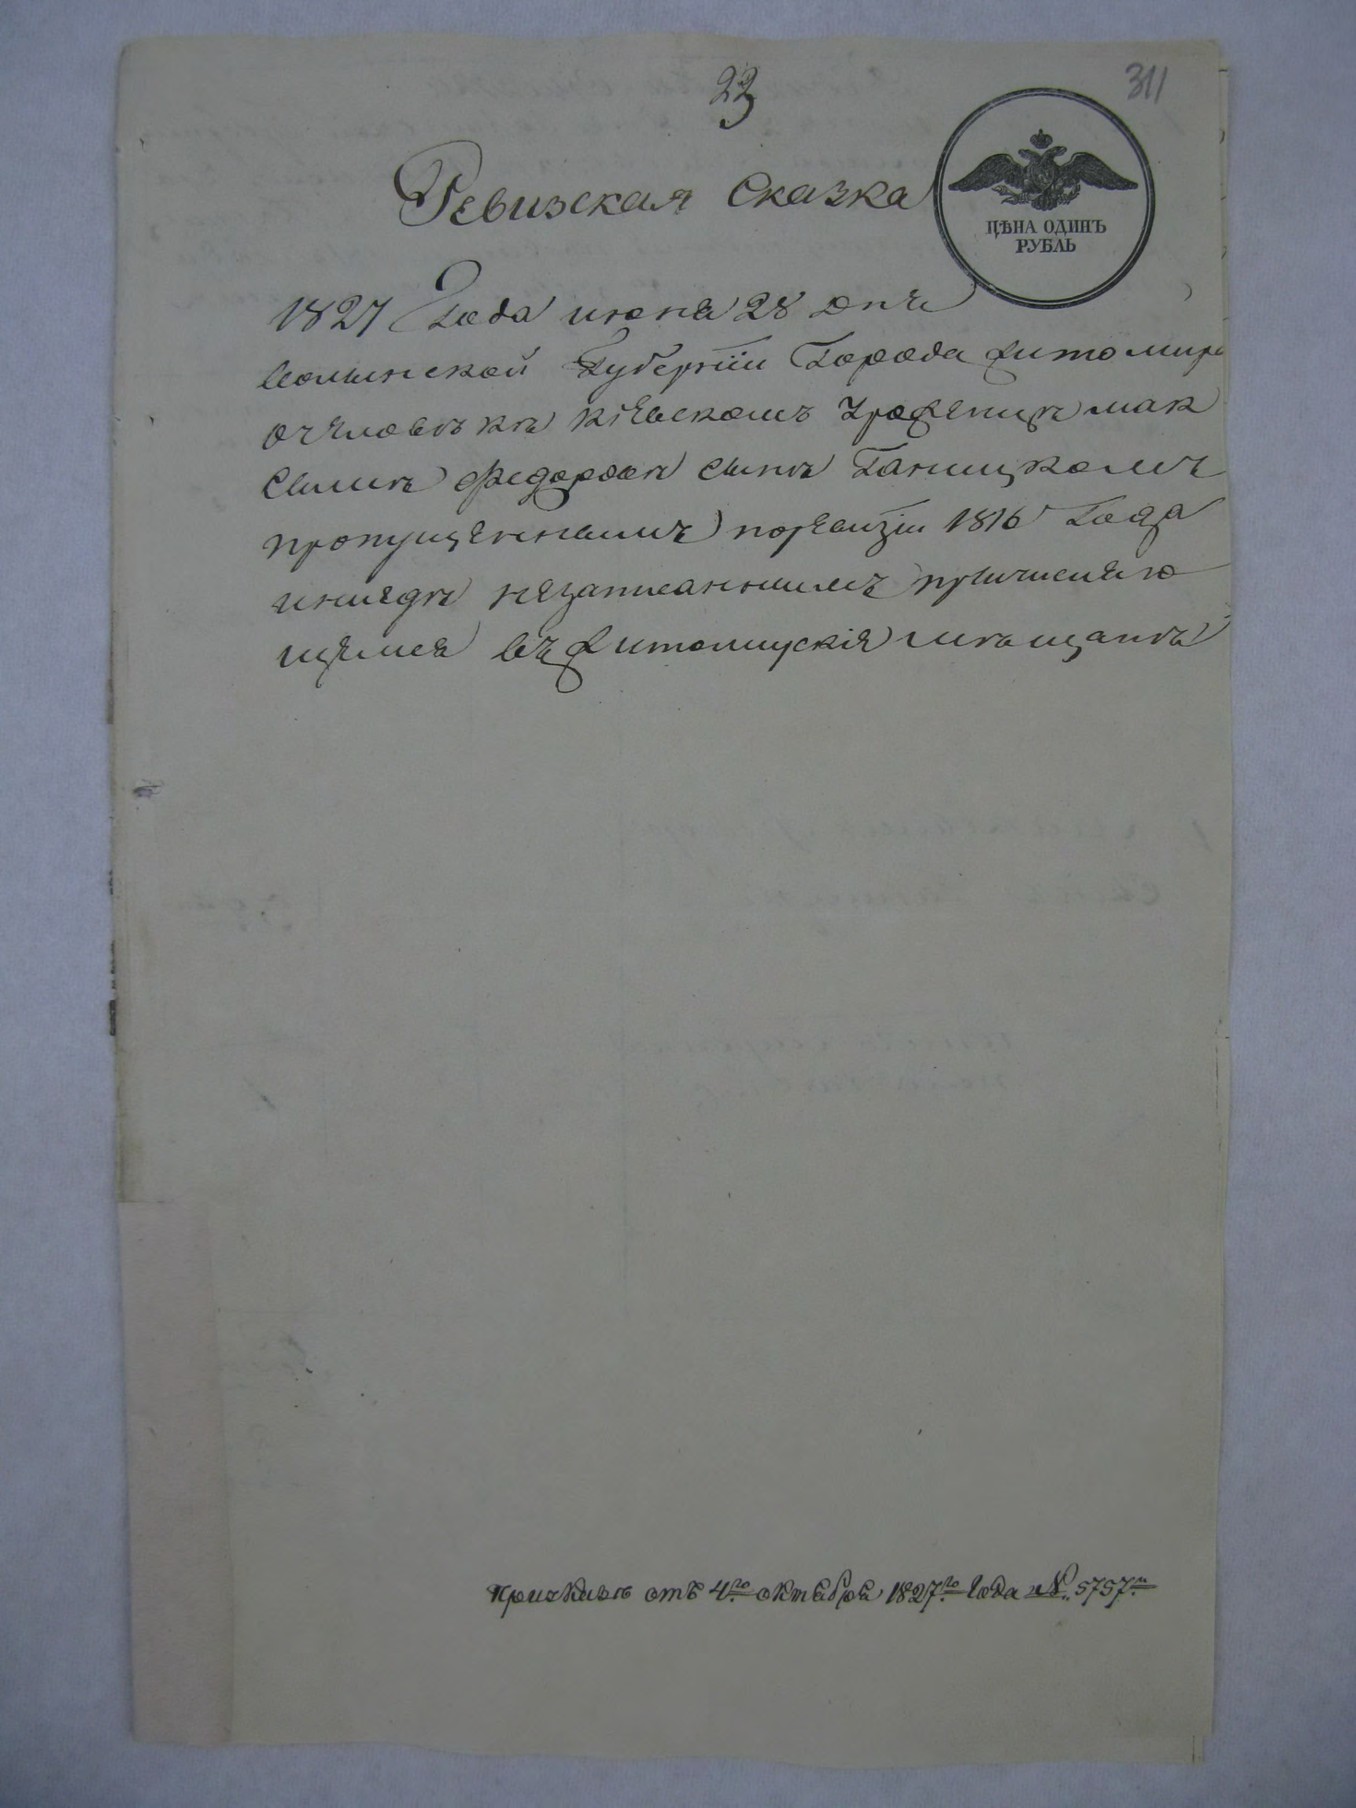 23
311
Ревизская Сказка
ЦѢНА ОДИНЪ
РУБЛЬ
1827 Года июня 28 дня
волынской Губернии Города житомира
очеловѣкѣ киевскомъ Урожениѣ мак
симѣ Федоровѣ сынѣ Ганицкомъ
пропущенномъ поревизіи 1816 Года
инигдѣ незаписанномъ причисляю
щемся въ житомирскія мѣщанѣ
отъ 4го октября 1827го Года №. 5757м